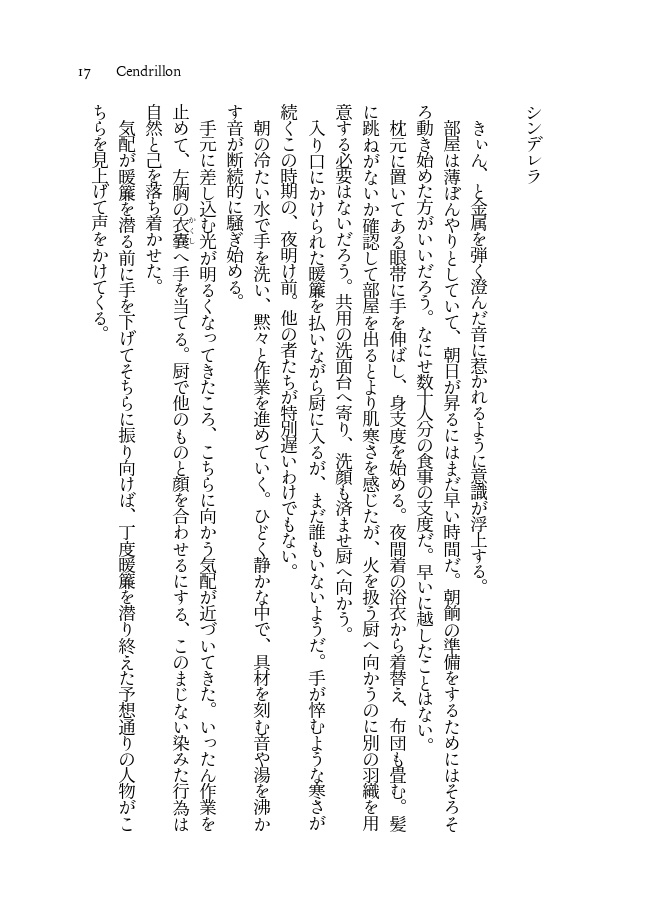 17 Cendrillon
シンデレラ
きぃん、と金属を弾く澄んだ音に惹かれるように意識が浮上する。
部屋は薄ぼんやりとしていて、朝日が昇るにはまだ早い時間だ。朝餉の準備をするためにはそろそ
ろ動き始めた方がいいだろう。なにせ数十人分の食事の支度だ。早いに越したことはない。
枕元に置いてある眼帯に手を伸ばし、身支度を始める。夜間着の浴衣から着替え、布団も畳む。髪
に跳ねがないか確認して部屋を出るとより肌寒さを感じたが、火を扱う厨へ向かうのに別の羽織を用
意する必要はないだろう。共用の洗面台へ寄り、洗顔も済ませ厨へ向かう。
入り口にかけられた暖簾を払いながら厨に入るが、まだ誰もいないようだ。手が悴むような寒さが
続くこの時期の、夜明け前。他の者たちが特別遅いわけでもない。
朝の冷たい水で手を洗い、黙々と作業を進めていく。ひどく静かな中で、具材を刻む音や湯を沸か
す音が断続的に騒ぎ始める。
手元に差し込む光が明るくなってきたころ、こちらに向かう気配が近づいてきた。いったん作業を
止めて、左胸の衣嚢へ手を当てる。厨で他のものと顔を合わせるにする、このまじない染みた行為は
かくし
自然と己を落ち着かせた。
気配が暖簾を潜る前に手を下げてそちらに振り向けば、丁度暖簾を潜り終えた予想通りの人物がこ
ちらを見上げて声をかけてくる。